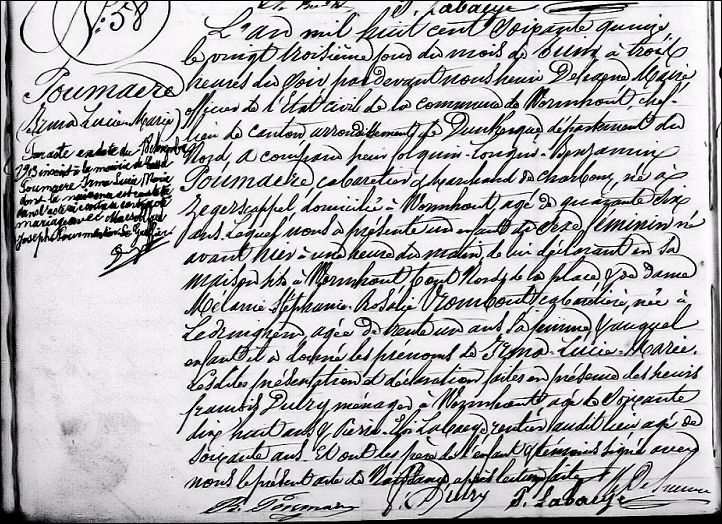 P. Labaeye
N° 58
Poumaere
Irma Lucie Marie
Par acte en date du
1913 inscrit à la mairie de
Poumaere Irma Lucie Marie
dont la naissance est constatée
dans l'acte ci-contre a contracté
mariage avec
Joseph Le Greffier
L'an mil huit cent soixante quinze
le vingt troisième jour du mois de Juin à trois
heures du soir pardevant nous heuri Maire
officier de l'état civil de la commune de Wormhout, chef-
lieu de canton arrondissement de Dunkerque département du
Nord, a comparu Benjamin
Poumaere cabaretier & marchand de charbons, né à
Zegerscappel domicilié à Wormhout agé de quarante six
ans. Lequel nous a présenté un enfant de sexe féminin né
avant hier à une heure du matin, de lui déclarant en sa
maison sise à Wormhout Nord de la place & de dame
Mélanie Stéphanie Rosalie Vrombout cabaretière, née à
Ledringhem, agée de trente un ans sa femme & auquel
enfant il a donné les prénoms de Irma-Lucie-Marie.
Lesdites présentation et déclaration faites en présence des sieurs
françois Dutry ménager à Wormhout agé de soixante
dix huit ans & Pierre Labaeye rentier audit lieu agé de
soixante ans. Et ont les père de l'enfant & témoins signé avec
nous le présent acte de Naissance après lecture faite
B. Poumaere
f. Dutry
P. Labaeye